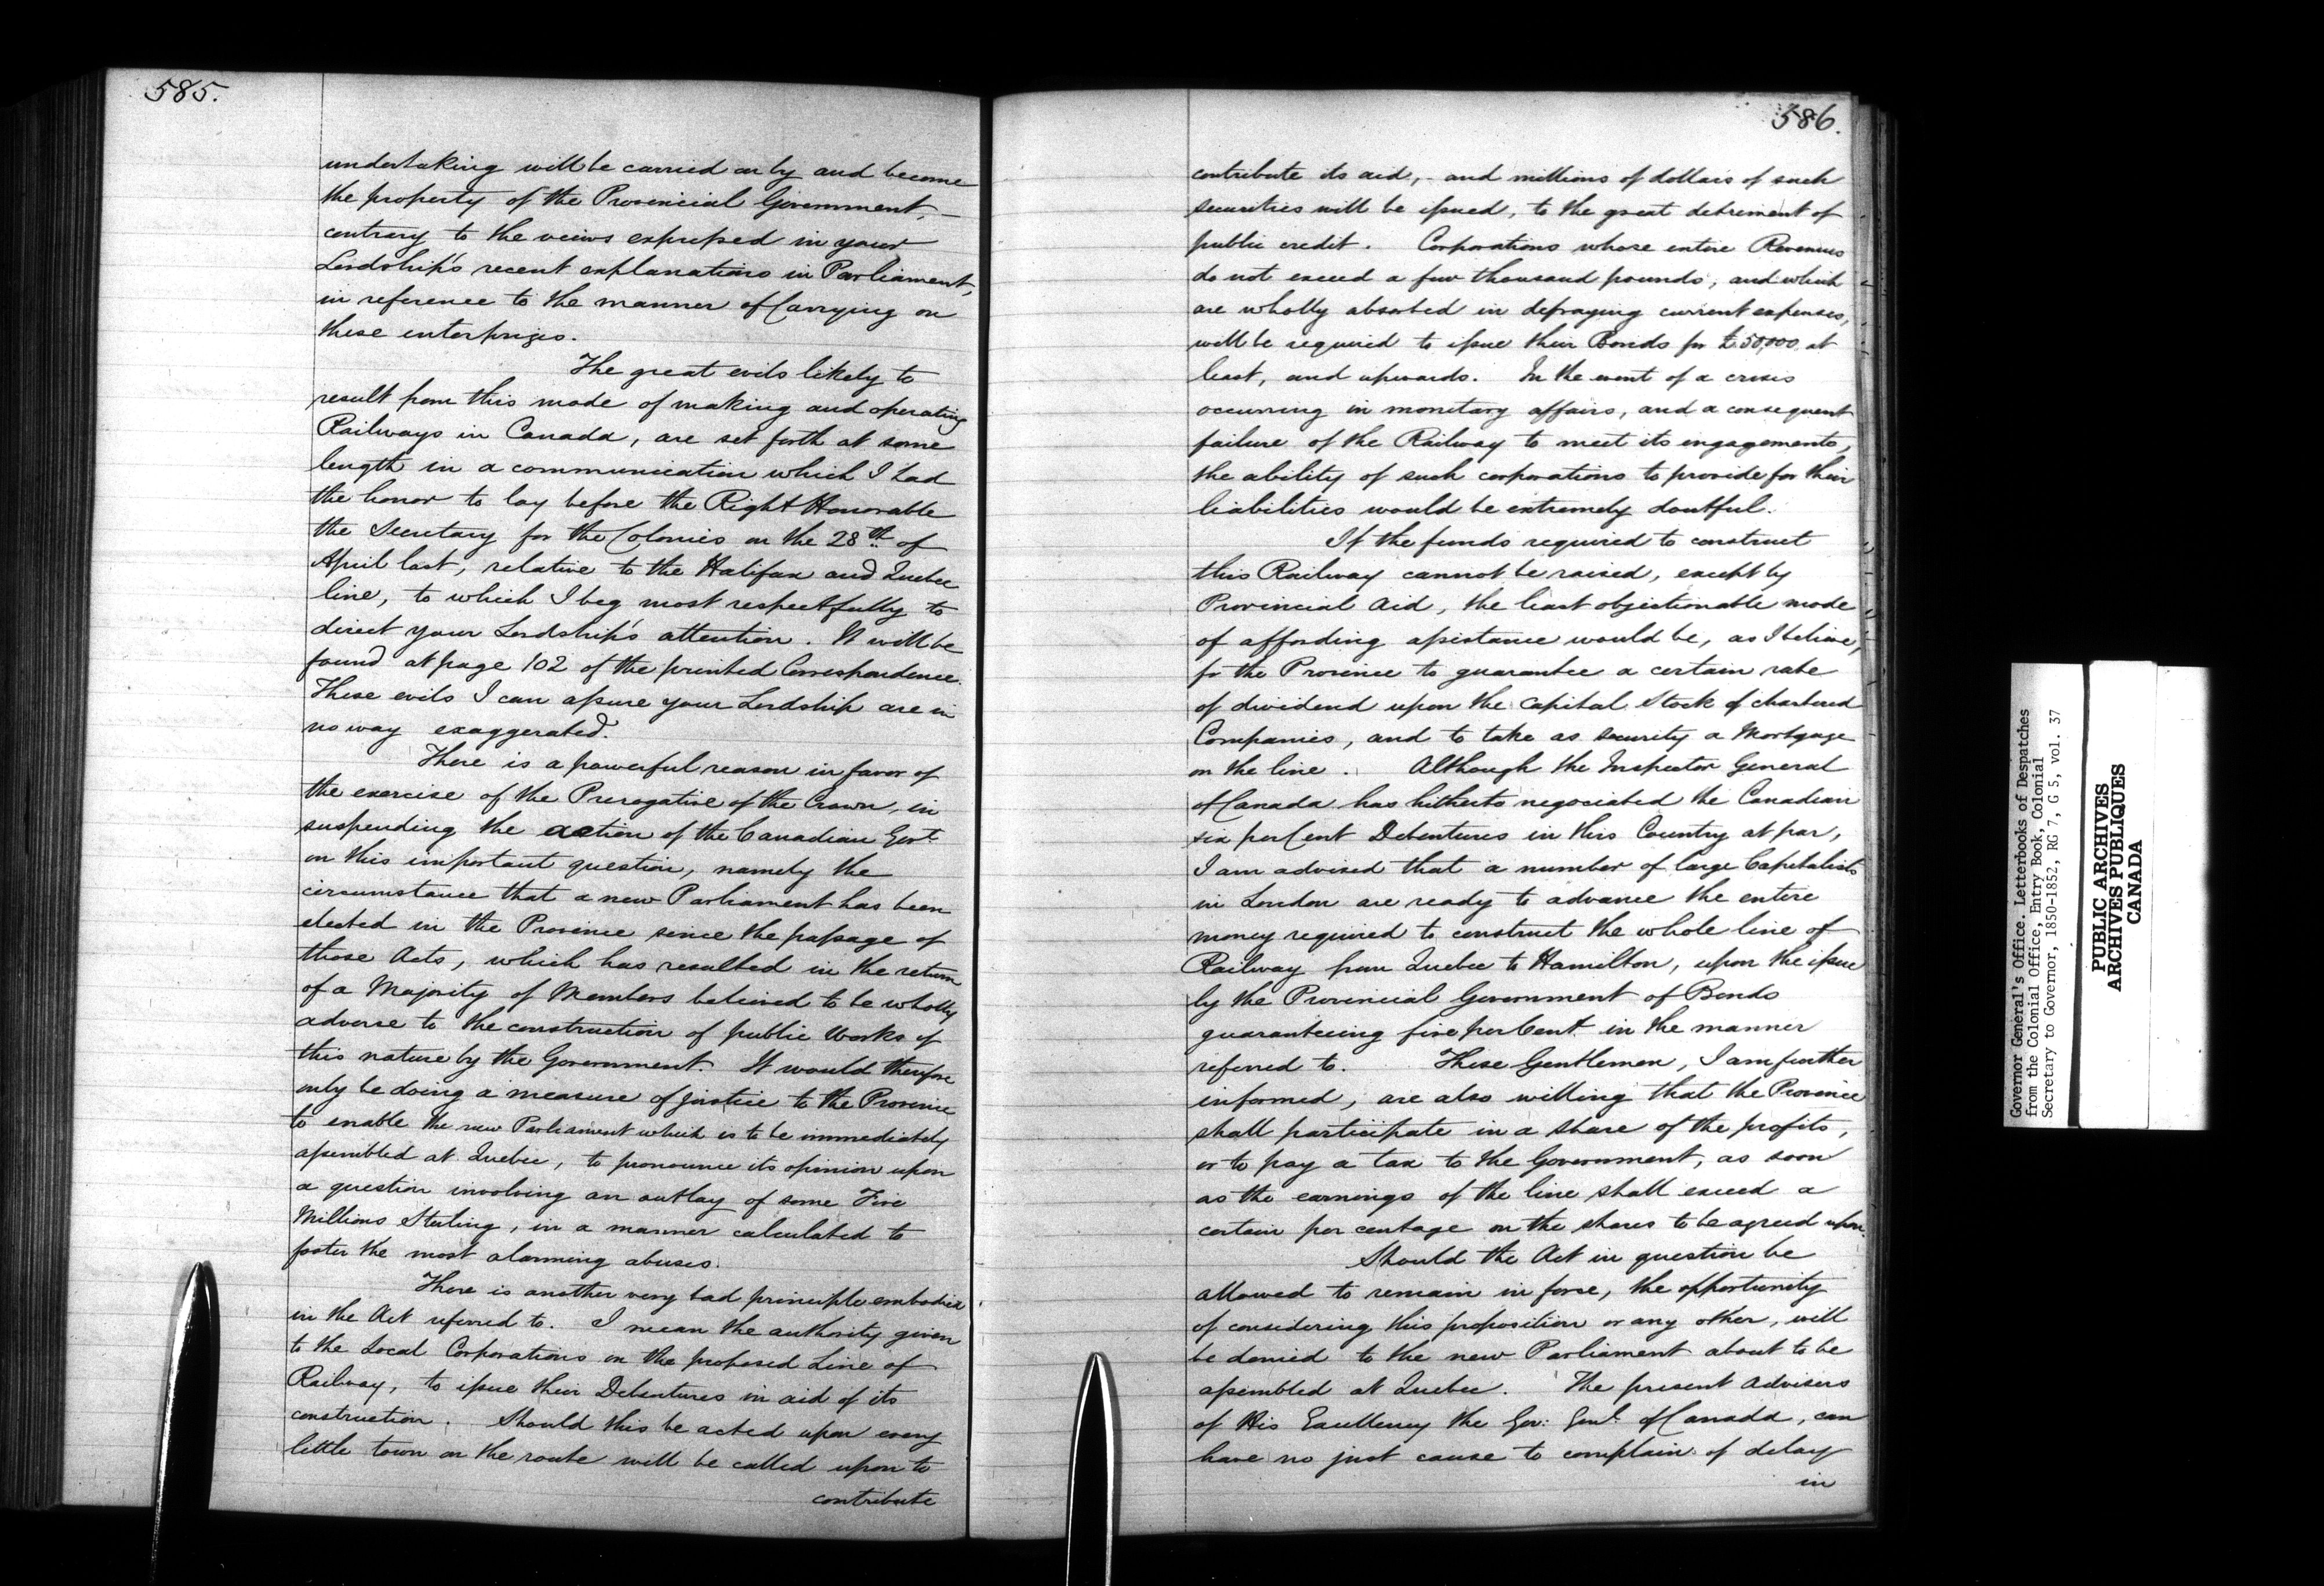 585.
undertaking will be carried on by and become
the property of the Provincial Government, –
contrary to the veiws expressed in your
Lordship's recent explanations in Parliament,
in reference to the manner of Carrying on
these enterprizes.
The great evils likely to
result from this mode of making and operating
Railways in Canada, are set forth at some
length in a communication which I had
the honor to lay before the Right Honorable
the Secretary for the Colonies on the 28th of
April last, relative to the Halifax and Quebec
line, to which I beg most respectfully to
direct your Lordship's attention. It will be
found at page 102 of the printed Correspondence.
These evils I can assure your Lordship are in
no way exaggerated.
There is a powerful reason in favor of
the exercise of the Prerogative of the Crown, in
suspending the action of the Canadian Govt.
on this important question, namely the
circumstance that a new Parliament has been
elected in the Province since the passage of
those Acts, which has resulted in the return
of a Majority of Members believed to be wholly
adverse to the construction of public Works of
this nature by the Government. It would therefore
only be doing a measure of justice to the Province
to enable the new Parliament which is to be immediately
assembled at Quebec, to pronounce its opinion upon
a question involving an outlay of some Five
Millions Sterling, in a manner calculated to
foster the most alarming abuses.
There is another very bad principle embodied
in the Act referred to. I mean the authority given
to the Local Corporations on the proposed Line of
Railway, to issue their Debentures in aid of its
construction. Should this be acted upon every
little town on the route will be called upon to
contribute
586.
contribute its aid, – and millions of dollars of such
securities will be issued, to the great detriment of
public credit. Corporations whose entire Revenues
do not exceed a few thousand pounds, and which
are wholly absorbed in defraying current expenses,
will be required to issue their Bonds for £50,000 at
least, and upwards. In the event of a crisis
occurring in monetary affairs, and a consequent
failure of the Railway to meet its engagements,
the ability of such corporations to provide for their
liabilities would be extremely doutful.
If the funds required to construct
this Railway cannot be raised, except by
Provincial Aid, the least objectionable mode
of affording assistance would be, as I believe,
for the Province to guarantee a certain rate
of dividend upon the Capital Stock of chartered
Companies, and to take as security a Mortgage
on the line. Although the Inspector General
of Canada has hitherto negociated the Canadian
six per Cent Debentures in this Country at par,
I am advised that a number of large Capitalists
in London are ready to advance the entire
money required to construct the whole line of
Railway from Quebec to Hamilton, upon the issue
by the Provincial Government of Bonds
guaranteeing five per Cent in the manner
referred to. These Gentlemen, I am further
informed, are also willing that the Province
shall participate in a share of the profits,
or to pay a tax to the Government, as soon
as the earnings of the line shall exceed a
certain per centage on the shares to be agreed upon.
Should the Act in question be
allowed to remain in force, the opportunity
of considering this proposition or any other, will
be denied to the new Parliament about to be
assembled at Quebec. The present Advisers
of His Excellency the Gov: Genl. of Canada, can
have no just cause to complain of delay
in
Governor General's Office. Letterbooks of Despatches
from the Colonial Office, Entry Book, Colonial
Secretary to Governor, 1850-1852, RG 7, G 5, vol. 37
PUBLIC ARCHIVES
ARCHIVES PUBLIQUES
CANADA